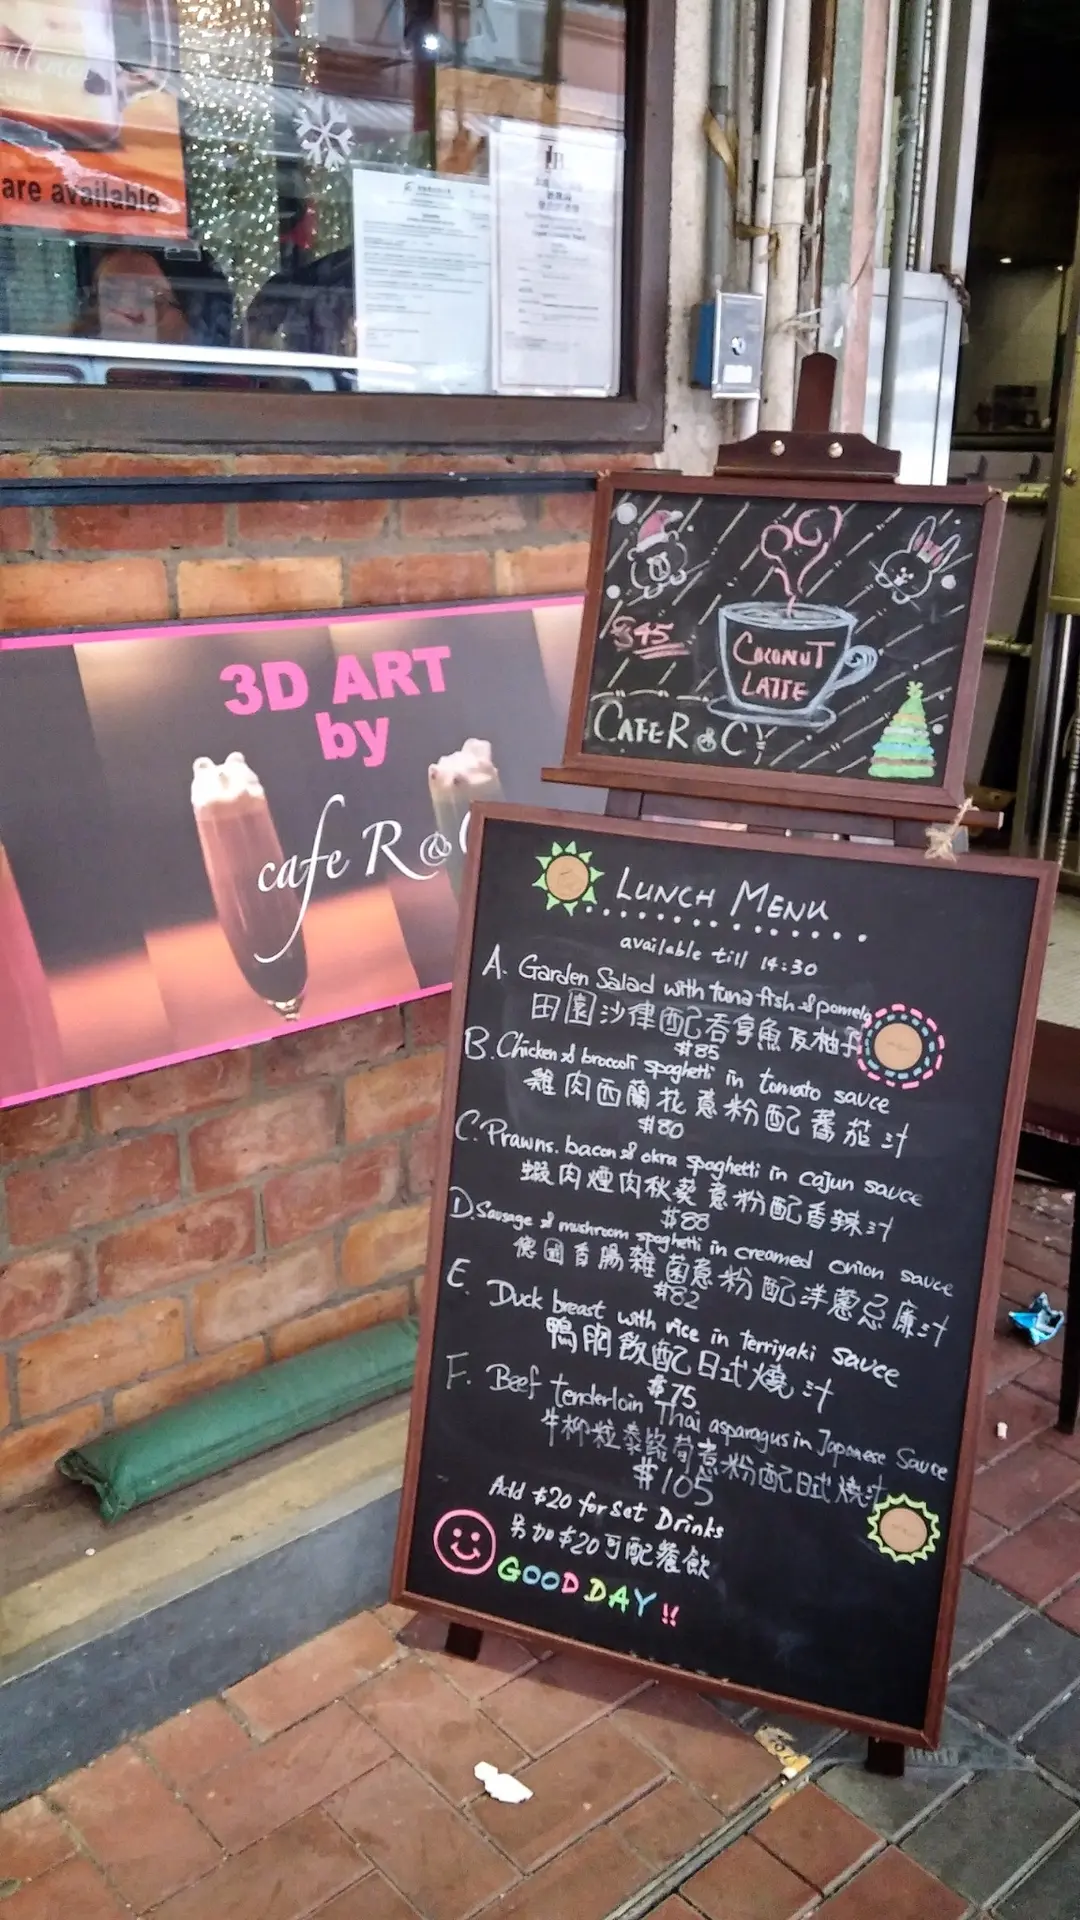 are available
3D ART
by
cafe R &
$45
COCONUT
LATTE
CAFE R & C
LUNCH MENU
available till 14:30
A. Garden Salad with tuna fish & pomelo
田園沙律配吞拿魚及柚子
$85
B. Chicken & broccoli spaghetti in tomato sauce
雞肉西蘭花意粉配蕃茄汁
$80
C. Prawns. bacon & okra spaghetti in cajun sauce
蝦肉煙肉秋葵意粉配香辣汁
$88
D. Sausage & mushroom spaghetti in creamed onion sauce
德國香腸雜菌意粉配洋蔥忌廉汁
$82
E. Duck breast with rice in terriyaki sauce
鴨胸飯配日式燒汁
$75
F. Beef tenderloin Thai asparagus in Japanese Sauce
牛柳粒泰露荀意粉配日式燒汁
$105
Add $20 for set Drinks
另加$20可配餐飲
GOOD DAY!!